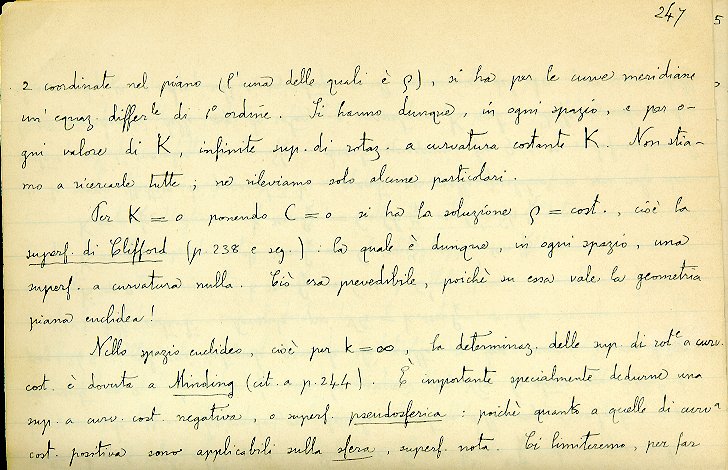 247
5
2 coordinate nel piano (l'una delle quali è ρ), si ha per le curve meridiane
un'equaz. differ.le di 1° ordine. Si hanno dunque, in ogni spazio, e per o-
gni valore di K, infinite sup. di rotaz. a curvatura costante K. Non stia-
mo a ricercarle tutte; ne rileviamo solo alcune particolari.
Per K = 0 ponendo C = 0 si ha la soluzione ρ = cost., cioè la
superf. di Clifford (p. 238 e seg.): la quale è dunque, in ogni spazio, una
superf. a curvatura nulla. Ciò era prevedibile, poichè su essa vale la geometria
piana euclidea!
Nello spazio euclideo, cioè per k = ∞, la determinaz. delle sup. di rot.e a curv.
cost. è dovuta a Minding (cit. a p. 244). È importante specialmente dedurne una
sup. a curv. cost. negativa, o superf. pseudosferica: poichè quanto a quelle di curv.a
cost. positiva sono applicabili sulla sfera, superf. nota. Ci limiteremo, per far